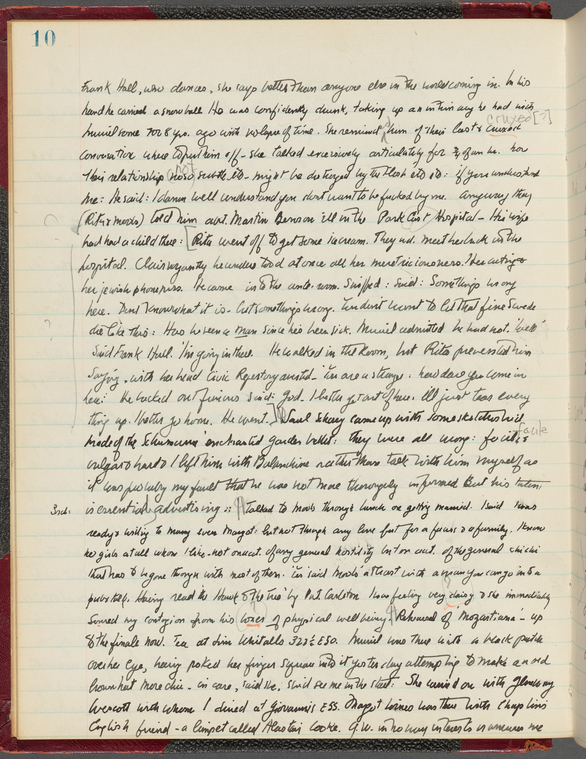 10
Frank Hall, who dances, she says better than anyone else in the world coming in. In his
hand he carried a snowball. He was confidently drunk, taking up an intimacy he had with
Muriel some 7 or 8 yrs. ago with no lapse of time. She reminded him of their last
cruxed [?]
conversation where she put him off - she talked excessively articulately for of an hr. how
their relationship was so subtle etc - might be destroyed by the flesh etc etc: if you understand
me: He said: I damn well understand you don't want to be fucked by me. Anyway they
(Rita & Moods) told him abt. Martin Benson ill in the Park East Hospital - His wife
had had a child there: [Rita went off to get some ice cream. They wd. meet her back in the
hospital. Clairvoyantly he understood at once all her meretriciousness. Her acting &
her jewish phoneyness. He came into the ante-room. Sniffed: Said: Something wrong
here. Dont know what it is - but something's wrong. You dont want to let that fine Swede
die like this: Has he seen a man since he's been sick. Muriel admitted he had not. Well
Said Frank Hall. I'm going in there. He walked in the Room, but Rita prevented him
Saying - with her best Civic Repertory accent - You are a stranger. how dare you come in
here: He backed out furious & said: God. I better get out of here. I'll just toss every
thing up. I better go home. He went.] Saul came up with some sketches he'd
made of the Schumann 'enchanted garden' ballet: they were all wrong: facile &
facile
vulgar & hard & I left him with Balanchine rather than talk with him myself as
it was probably my fault that he was not more thoroughly informed. But his talent
is essential advertising:
3rd.
Talked to Moods through lunch on getting married. I said I was
ready & willing to marry even Margot: but not though any love just for a focus & a family. I know
no girls at all whom I like - not on acct. of any general hostility but on acct. of the general chichi
that has to be gone through with most of them. You said Moods' at least with a man you can go into a
pub & talk. Having read the Hawk & the Tree by Pat Carlston I was feeling very daisy & she immediately
sensed my contagion from his of physical well being. Rehearsal of 'Mozartiana' - up
to the finale now. Tea at Jim Whitalls 323½ E 50. Muriel was there with a black patch
over her eye, having poked her finger square into it yesterday attempting to make an old
brown hat more chic - in case, said she, I should see me in the street: She carried on with Glenway
Wescott with whom I dined at Giovannis E 55. Margot was there with Chaplins
English friend - a limpet called Alastair Cooke. G.W. in no way interests or unnerves me